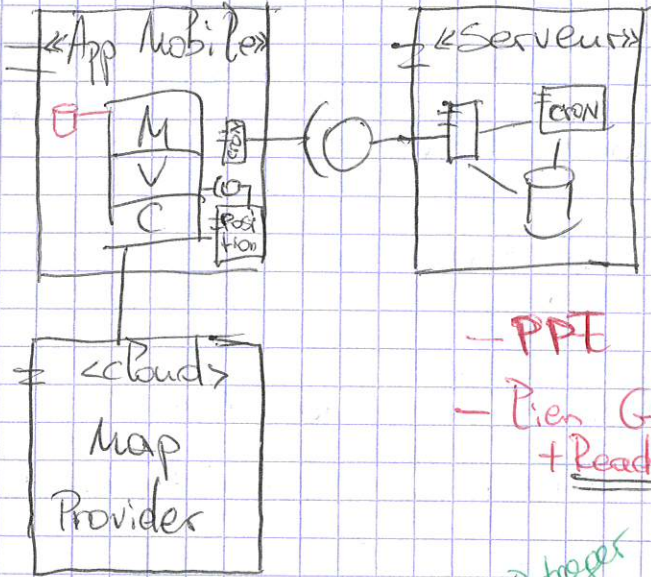 «App Mobile»
M
V
C
CRON
Posi
tion
«Serveur»
CRON
<cloud>
Map
Provider
- PPT
- Lien G
+ Read